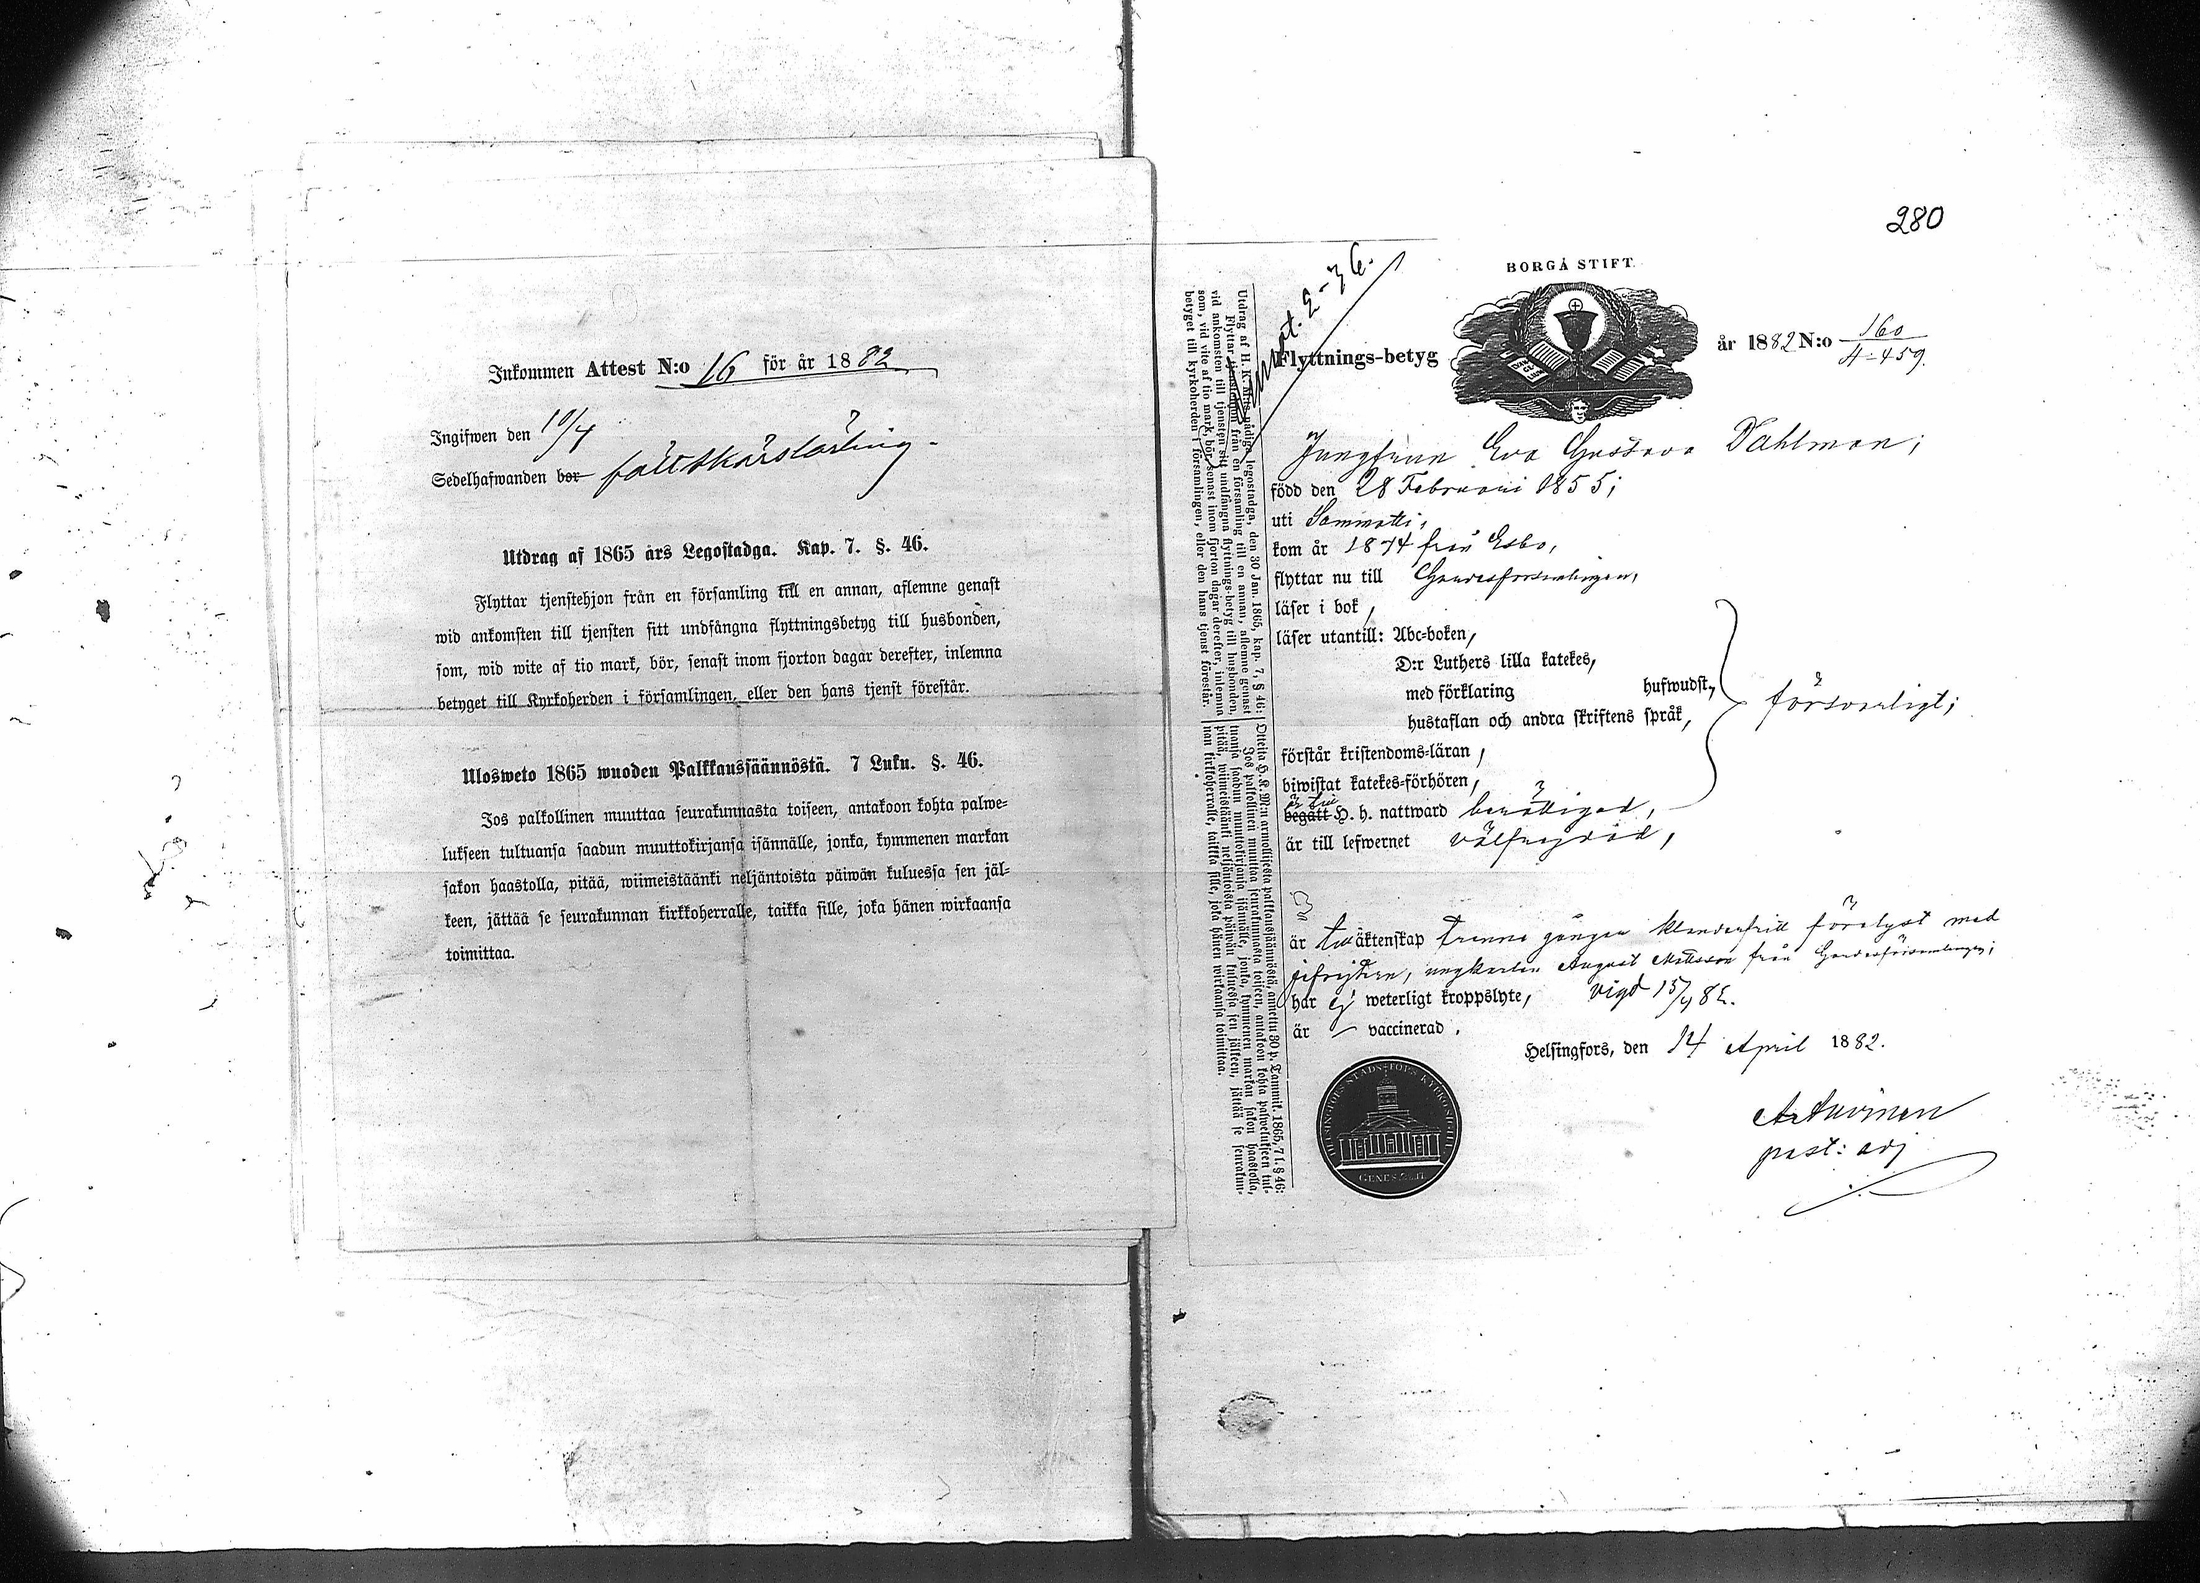 Inkommen Attest N:o 16 för år 1882
Ingifwen den 10/4
Sedelhafwanden bor fältskärslärling.
Utdrag af 1865 års Legostadga. Kap. 7. §. 46.
Flyttar tjenstehjon från en församling till en annan, aflemne genast
wid ankomsten till tjensten sitt undfångna flyttningsbetyg till husbonden,
som, wid wite af tio mark, bör, senast inom fjorton dagar derefter, inlemna
betyget till Kyrkoherden i församlingen, eller den hans tjenst förestår.
Ulosweto 1865 wuoden Palkkaussäännöstä. 7 Luku. §. 46.
Jos palkollinen muuttaa seurakunnasta toiseen, antakoon kohta palwe=
lukseen tultuansa saadun muuttokirjansa isännälle, jonka, kymmenen markan
sakon haastolla, pitää, wiimeistäänki neljäntoista päiwän kuluessa sen jäl=
keen, jättää se seurakunnan kirkkoherralle, taikka sille, joka hänen wirkaansa
toimittaa.
280
BORGÅ STIFT.
Flyttnings-betyg
år 1882 N:o 160
4-459.
Jungfrun Eva Gustava Dahlman;
född den 28 Februari 1855;
uti Sammatti,
kom år 1874 från Esbo,
flyttar nu till Gardesförsamlingen,
läser i bok,
läser utantill: Abc=boken,
D:r Luthers lilla katekes,
med förklaring hufwudst.,
hustaflan och andra skriftens språk,
försvarligt;
förstår kristendoms=läran,
biwistat katekes=förhören,
är till
begått H. h. nattward berättigad,
är till lefwernet välfrejdad,
är till äktenskap trenne gånger klanderfritt förelyst med
ungkarlen August Mattsson från Gardesförsamlingen;
har ej weterligt kroppslyte, vigd 15/4 82.
är vaccinerad.
Helsingfors, den 14 April 1882.
past: adj
Utdrag af H. K. M:ts nådiga legostadga, den 30 Jan. 1865, kap. 7, § 46:
Flyttar tjenstehjon från en församling till en annan, aflemne genast
vid ankomsten till tjensten sitt undfångna flyttnings-betyg till husbonden,
som, vid vite af tio mark, bör, senast inom fjorton dagar derefter, inlemna
betyget till kyrkoherden i församlingen, eller den hans tjenst förestår.
Otteita H. K. M:n armollisesta palkkaussäännöstä, annettu 30 p. Tammik. 1865, 7 l. § 46:
Jos palkollinen muuttaa seurakunnasta toiseen, antakoon kohta palwelukseen tul-
tuansa saadun muuttokirjansa isännälle, jonka, kymmenen markan sakon haastolla,
pitää, wiimeistänki neljäntoista päiwän kuluessa sen jälkeen, jättää se seurakun-
nan kirkkoherralle, taikka sille, joka hänen wirkaansa toimittaa.